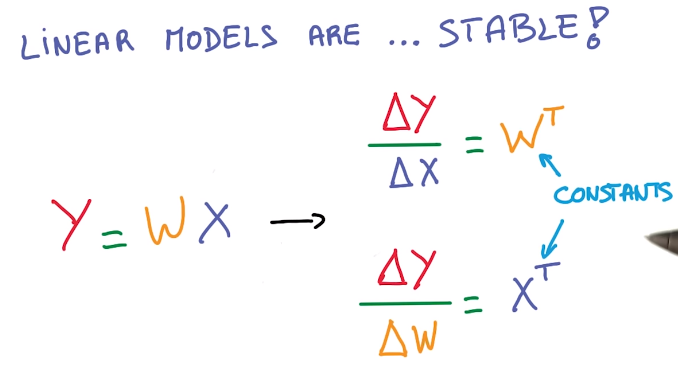 LINEAR MODELS ARE ... STABLE!
ΔY/ΔX = W^T
CONSTANTS
Y = WX →
ΔY/ΔW = X^T